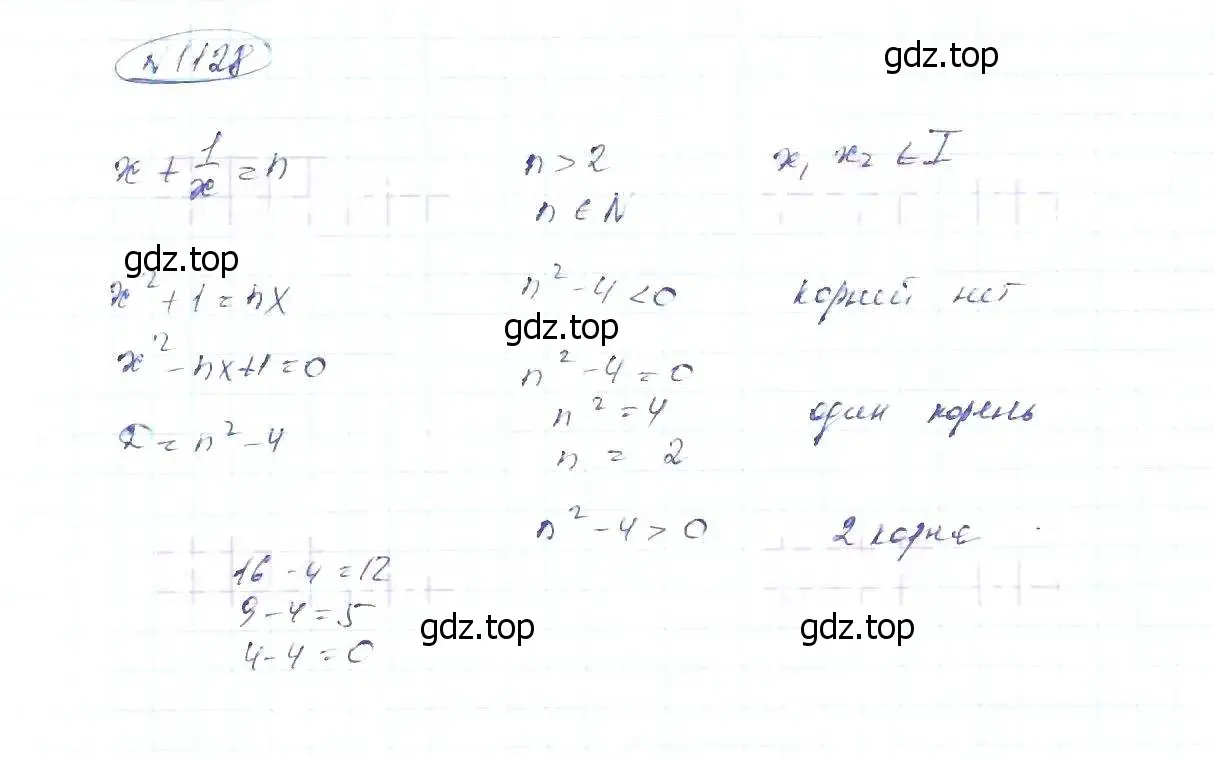 № 1128
gdz.top
x + 1/x = n n > 2 x₁ x₂ ∈ I
n ∈ N
gdz.top
x² + 1 = nx n² - 4 < 0 корний нет
gdz.top
x² - nx + 1 = 0 n² - 4 = 0
n² = 4 один корень
D = n² - 4 n = 2
n² - 4 > 0 2 корня
16 - 4 = 12
9 - 4 = 5
gdz.top gdz.top
4 - 4 = 0